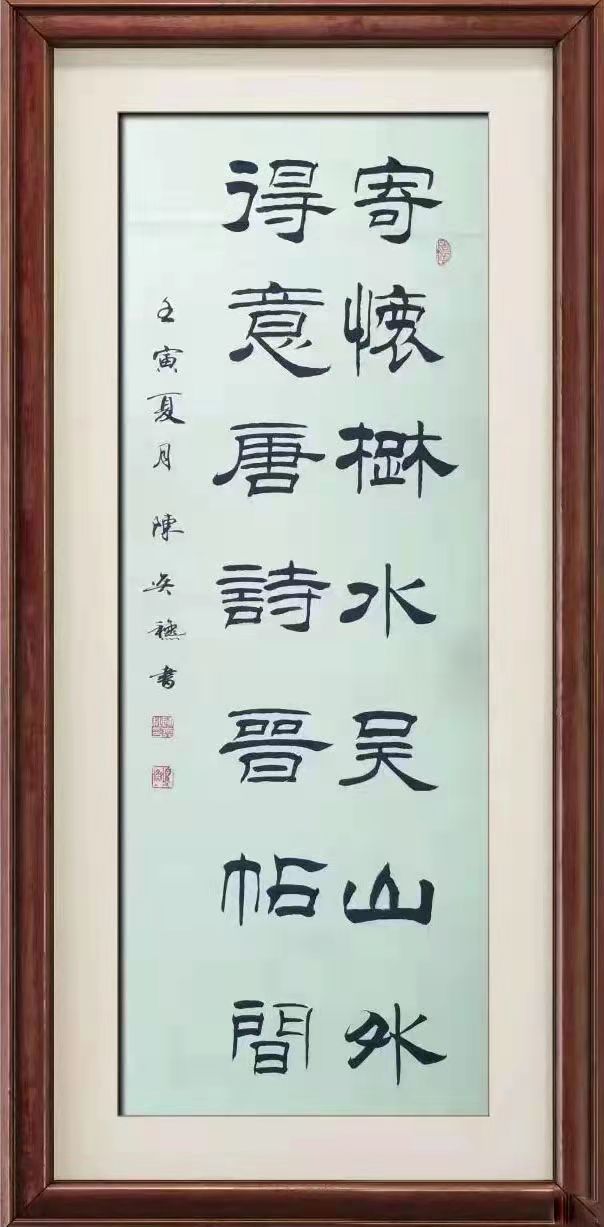 寄懷楚水吴山外
得意唐詩晉帖間
壬寅夏月陳書